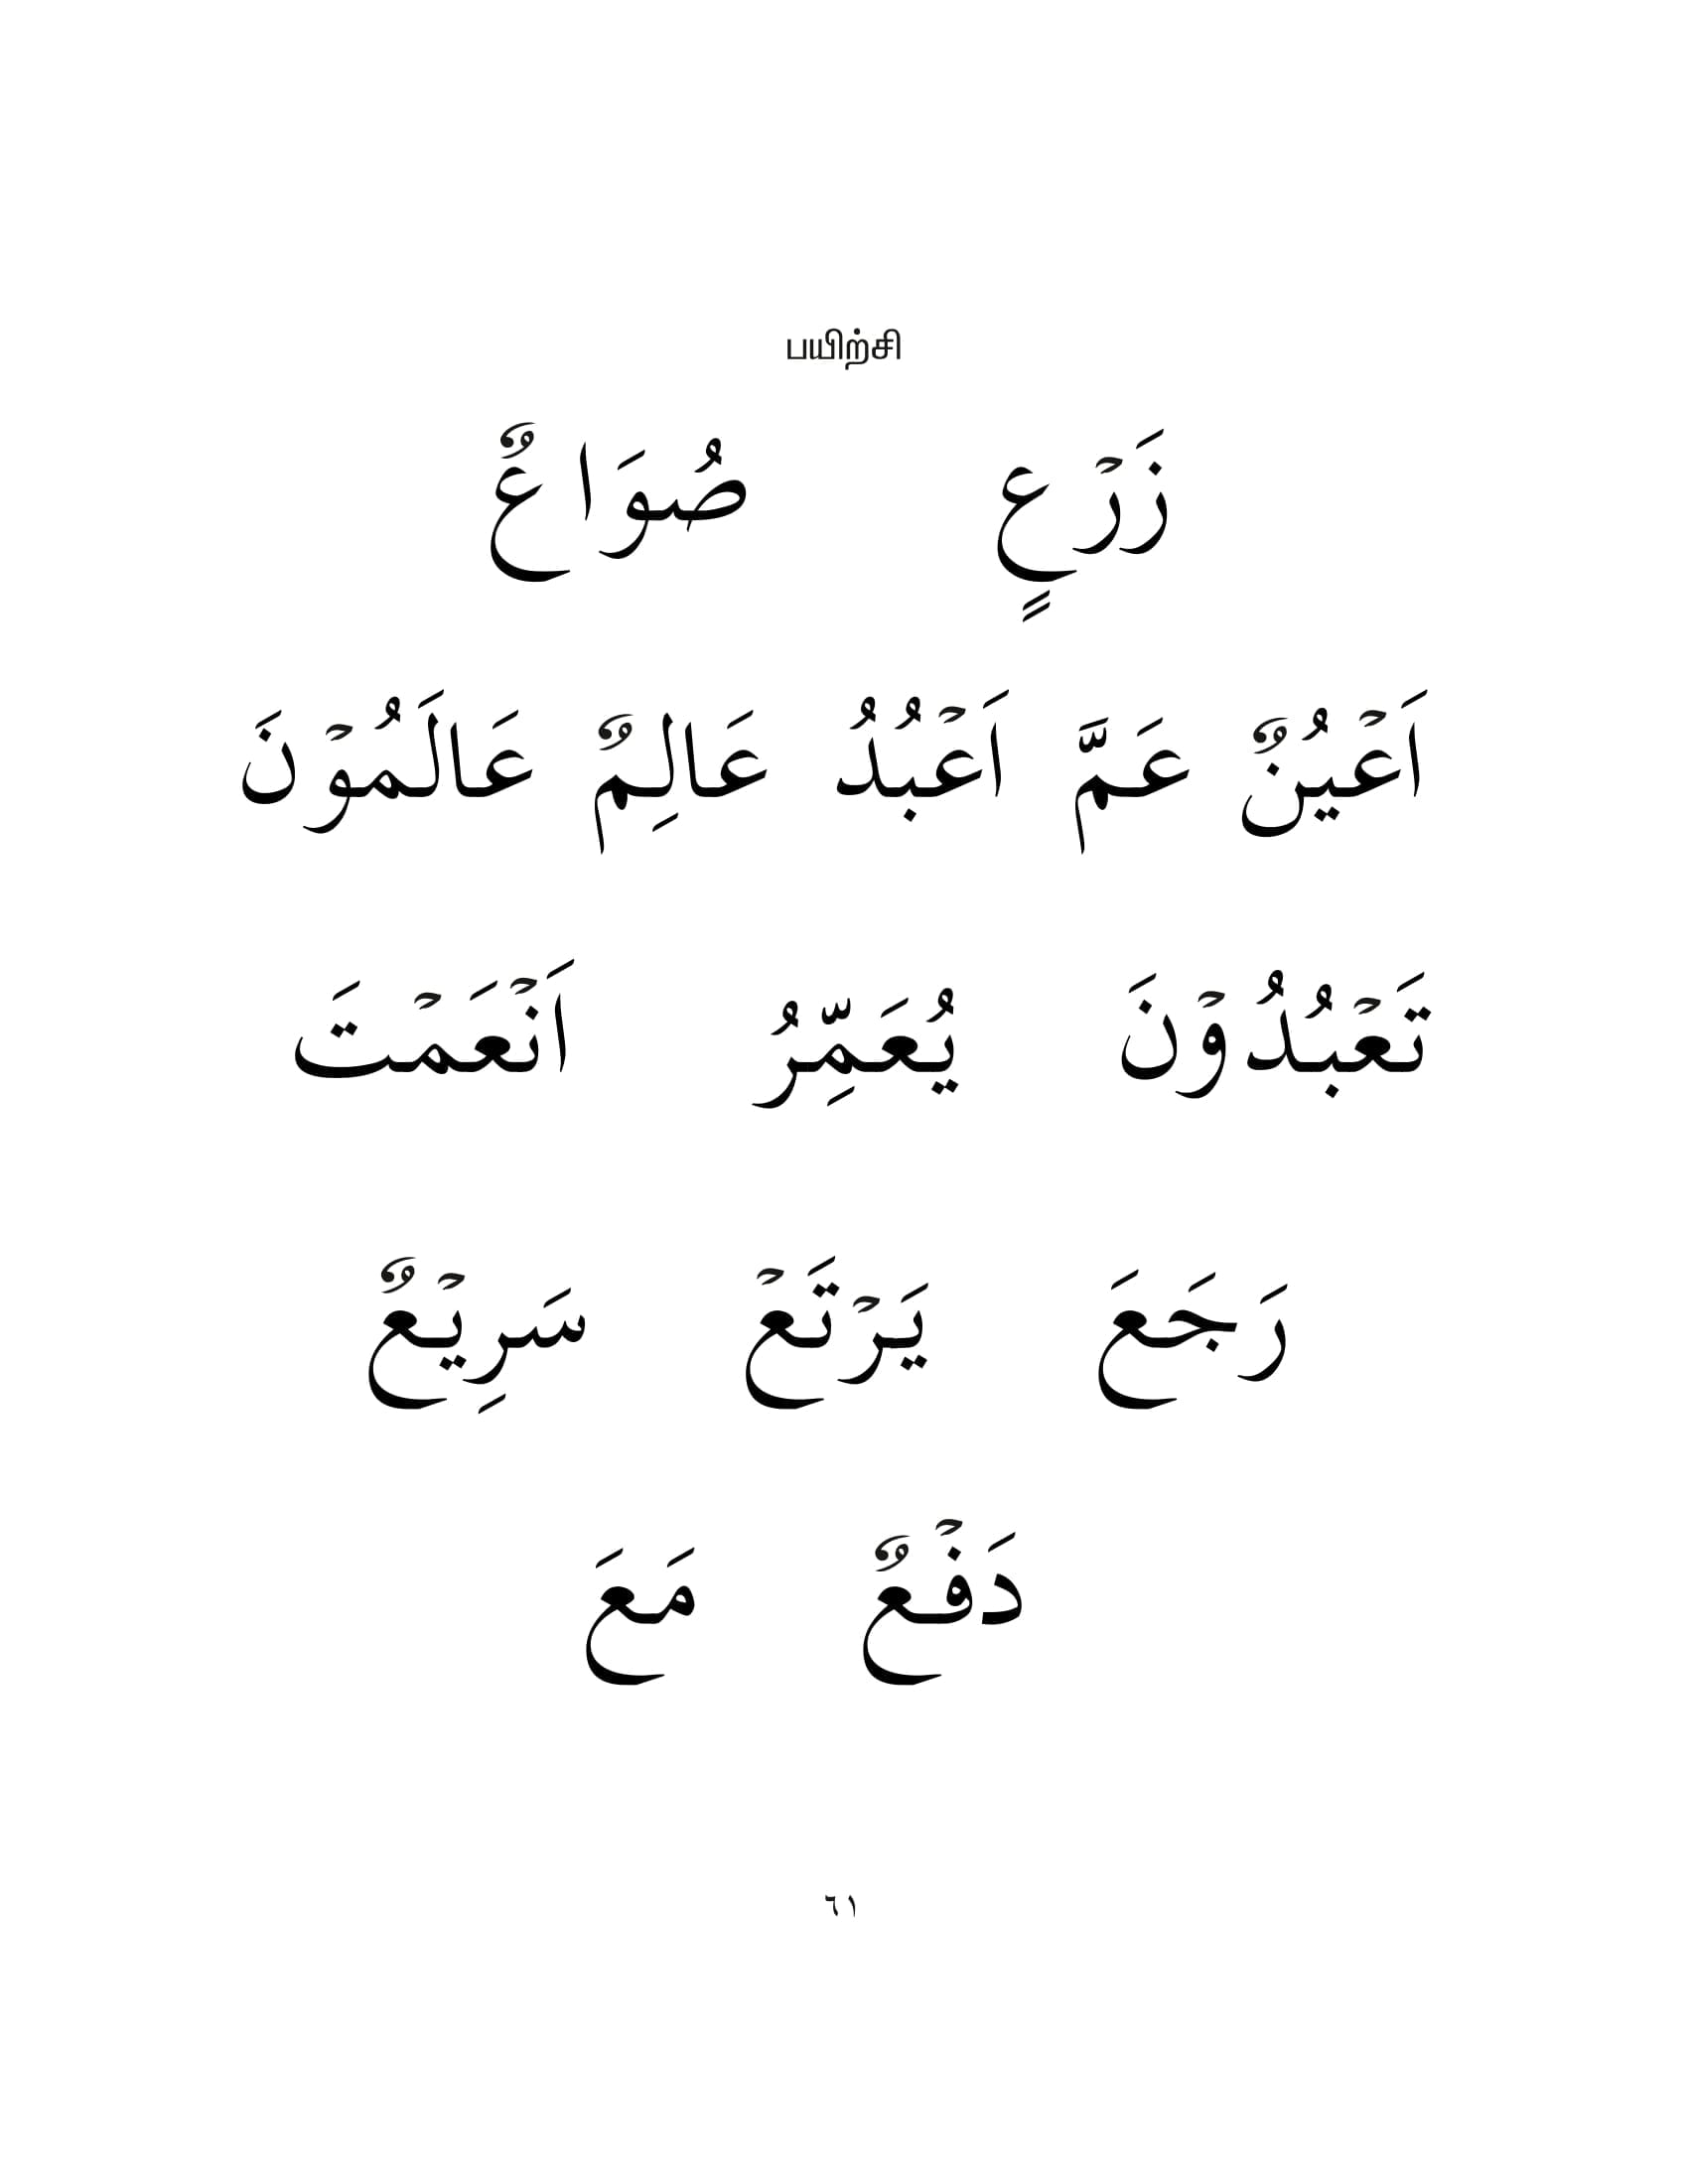 பயிற்சி
زَرْعٍ صُوَاعٌ
اَعْيُنٌ عَمَّ اَعْبُدُ عَالِمٌ عَالَمُوْنَ
تَعْبُدُوْنَ يُعَمِّرُ اَنْعَمْتَ
رَجَعَ يَرْتَعْ سَرِيْعٌ
دَفْعٌ مَعَ
٦١